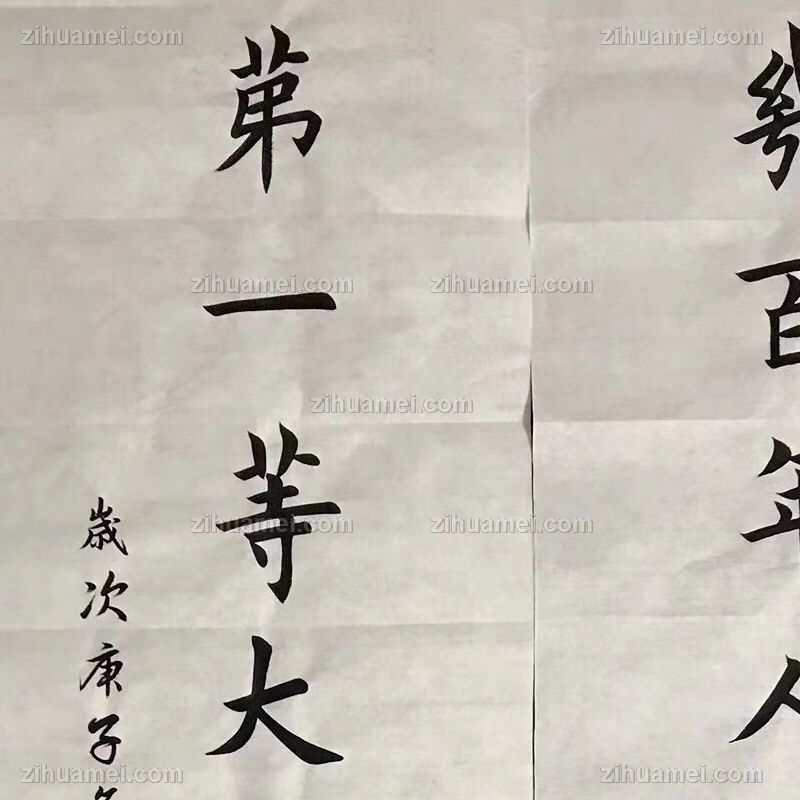 幾百年人
第一等大
歲次庚子
zihuamei.com zihuamei.com
zihuamei.com zihuamei.com
zihuamei.com
zihuamei.com zihuamei.com
zihuamei.com zihuamei.com